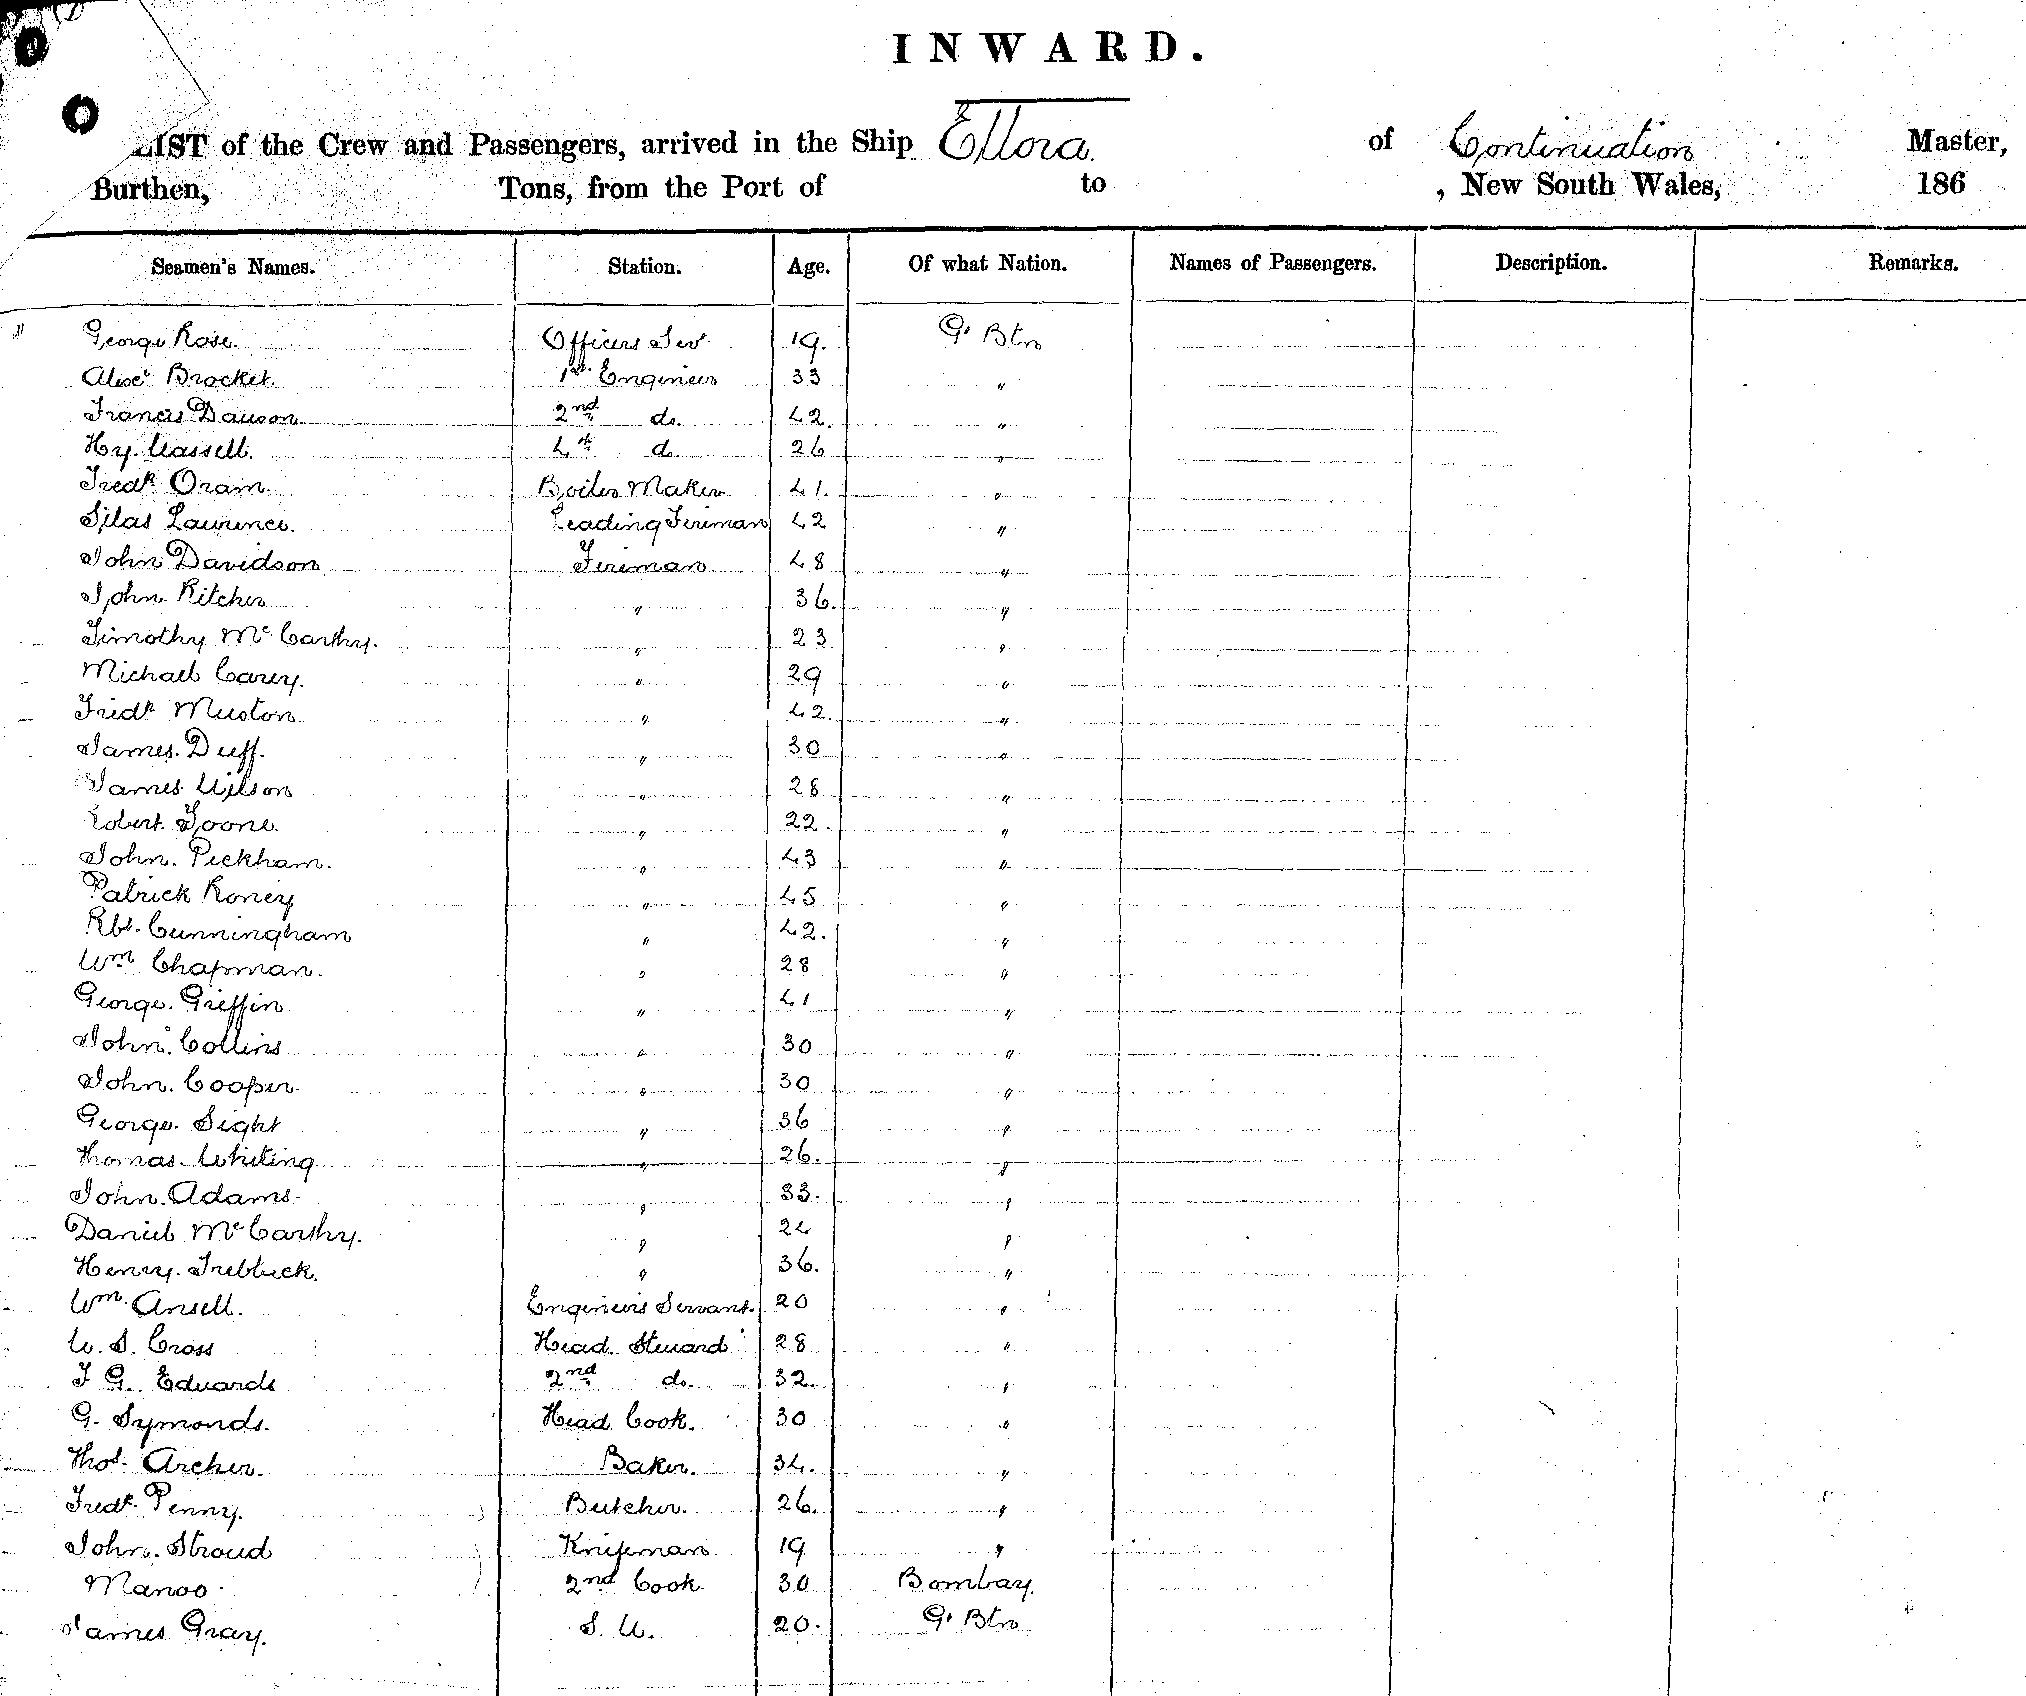 INWARD.
LIST of the Crew and Passengers, arrived in the Ship Ellora of Continuation Master,
Burthen, Tons, from the Port of to , New South Wales, 186
Seamen's Names. Station. Age. Of what Nation. Names of Passengers. Description. Remarks.
George Rose Officers Sev 19. Gt Btn
Alexr Brocket. 1st Engineer 33 "
Francis Dawson 2nd do. 42. "
Hy. Cassell. 4th do 26 "
Fredk Oram Boiler Maker 41. "
Silas Laurence. Leading Fireman 42 "
John Davidson Fireman 48 "
John Ritcher " 36. "
Timothy McCarthy. " 23 "
Michael Carey. " 29 "
Fredk Muston " 42. "
James. Duff. " 30 "
James Wilson " 28 "
Robert Toone. " 22. "
John. Peckham. " 43 "
Patrick Roney " 45 "
Rbt. Cunningham " 42. "
Wm Chapman. " 28 "
George. Griffin " 41 "
John. Collins " 30 "
John. Cooper " 30 "
George. Sight " 36 "
Thomas. Whiting " 26. "
John. Adams. " 33. "
Daniel McCarthy. " 24 "
Henry. Trebbick. " 36. "
Wm. Ansell. Engineers Servant. 20 "
W. S. Cross Head Steward 28 "
J G. Edwards 2nd do. 32. "
G. Symonds. Head Cook. 30 "
Thos. Archer. Baker. 34. "
Fredk. Penny. Butcher. 26. "
John. Stroud Knifeman 19 "
Manoo 2nd Cook 30 Bombay.
James Gray. S. W. 20. Gt Btn